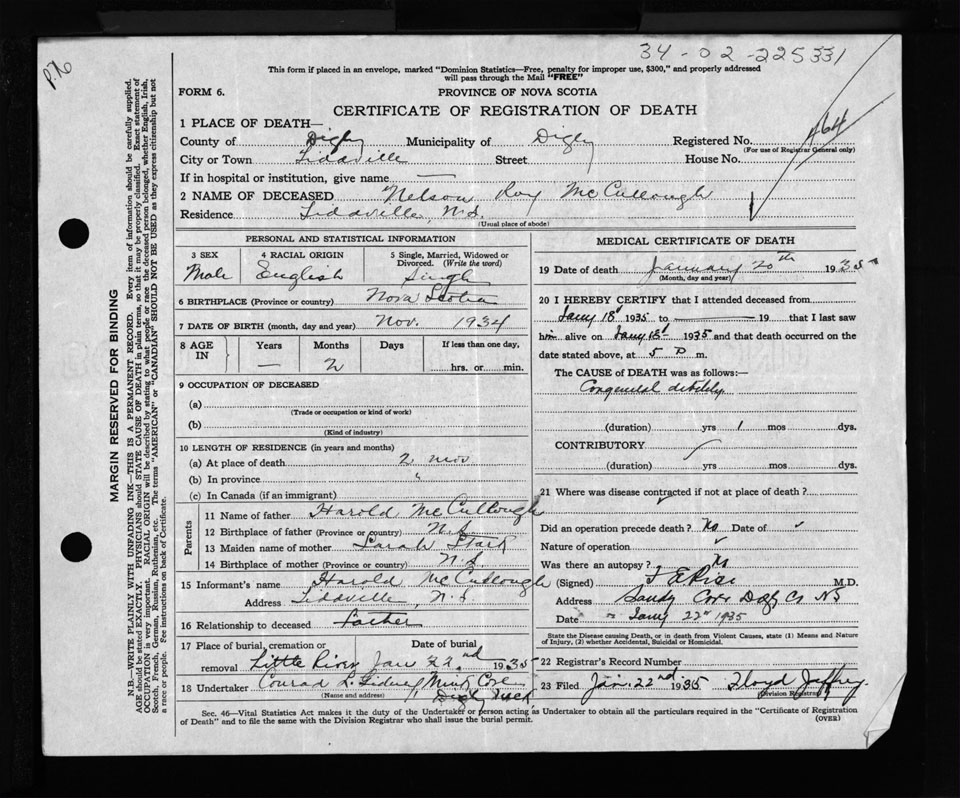 34-02-225331
P76
This form if placed in an envelope, marked "Dominion Statistics—Free, penalty for improper use, $300," and properly addressed
will pass through the Mail "FREE"
FORM 6.
PROVINCE OF NOVA SCOTIA
CERTIFICATE OF REGISTRATION OF DEATH
1 PLACE OF DEATH—
County of Digby Municipality of Digby Registered No. 464
(For use of Registrar General only)
City or Town Tiddville Street House No.
If in hospital or institution, give name —
2 NAME OF DECEASED Nelson Roy McCullough
Residence Tiddville, N.S.
(Usual place of abode)
PERSONAL AND STATISTICAL INFORMATION
3 SEX 4 RACIAL ORIGIN 5 Single, Married, Widowed or
Divorced. (Write the word)
Male English Single
6 BIRTHPLACE (Province or country) Nova Scotia
7 DATE OF BIRTH (month, day and year) Nov. 1934
8 AGE IN Years Months Days If less than one day,
— 2 hrs. or min.
9 OCCUPATION OF DECEASED
(a)
(Trade or occupation or kind of work)
(b)
(Kind of industry)
10 LENGTH OF RESIDENCE (in years and months)
(a) At place of death 2 mos
(b) In province "
(c) In Canada (if an immigrant)
Parents
11 Name of father Harold McCullough
12 Birthplace of father (Province or country) N.S.
13 Maiden name of mother Sarah Stark
14 Birthplace of mother (Province or country) N.S.
15 Informant's name Harold McCullough
Address Tiddville, N.S.
16 Relationship to deceased Father
17 Place of burial, cremation or Date of burial
removal Little River Jan 22nd 1935
18 Undertaker Conrad L. Gidney Mink Cove
(Name and address) Digby Neck
MEDICAL CERTIFICATE OF DEATH
19 Date of death January 20th 1935
(Month, day and year)
20 I HEREBY CERTIFY that I attended deceased from
Jany 18th 1935 to — 19 that I last saw
him alive on Jany 18th 1935 and that death occurred on the
date stated above, at 5 P m.
The CAUSE of DEATH was as follows:—
Congenital debility
(duration) yrs 1 mos dys.
CONTRIBUTORY
(duration) yrs mos dys.
21 Where was disease contracted if not at place of death?
Did an operation precede death? No Date of
Nature of operation
Was there an autopsy? No
(Signed) F E Rice M.D.
Address Sandy Cove Digby Co NS
Date Jany 22nd 1935
State the Disease causing Death, or in death from Violent Causes, state (1) Means and Nature
of Injury, (2) whether Accidental, Suicidal or Homicidal.
22 Registrar's Record Number
23 Filed Jan. 22nd 1935 Lloyd Jeffrey
(Division Registrar)
Sec. 46—Vital Statistics Act makes it the duty of the Undertaker or person acting as Undertaker to obtain all the particulars required in the "Certificate of Registration
of Death" and to file the same with the Division Registrar who shall issue the burial permit.
(OVER)
MARGIN RESERVED FOR BINDING
N.B.—WRITE PLAINLY WITH UNFADING INK—THIS IS A PERMANENT RECORD. Every item of information should be carefully supplied.
AGE should be stated EXACTLY. PHYSICIANS should STATE CAUSE OF DEATH in plain terms, so that it may be properly classified. Exact statement of
OCCUPATION is very important. RACIAL ORIGIN will be described by stating to what people or race the deceased person belonged, whether English, Irish,
Scotch, French, German, Russian, Ruthenian, etc. The terms "AMERICAN" or "CANADIAN" SHOULD NOT BE USED as they express citizenship but not
a race or people. Fee instructions on back of Certificate.